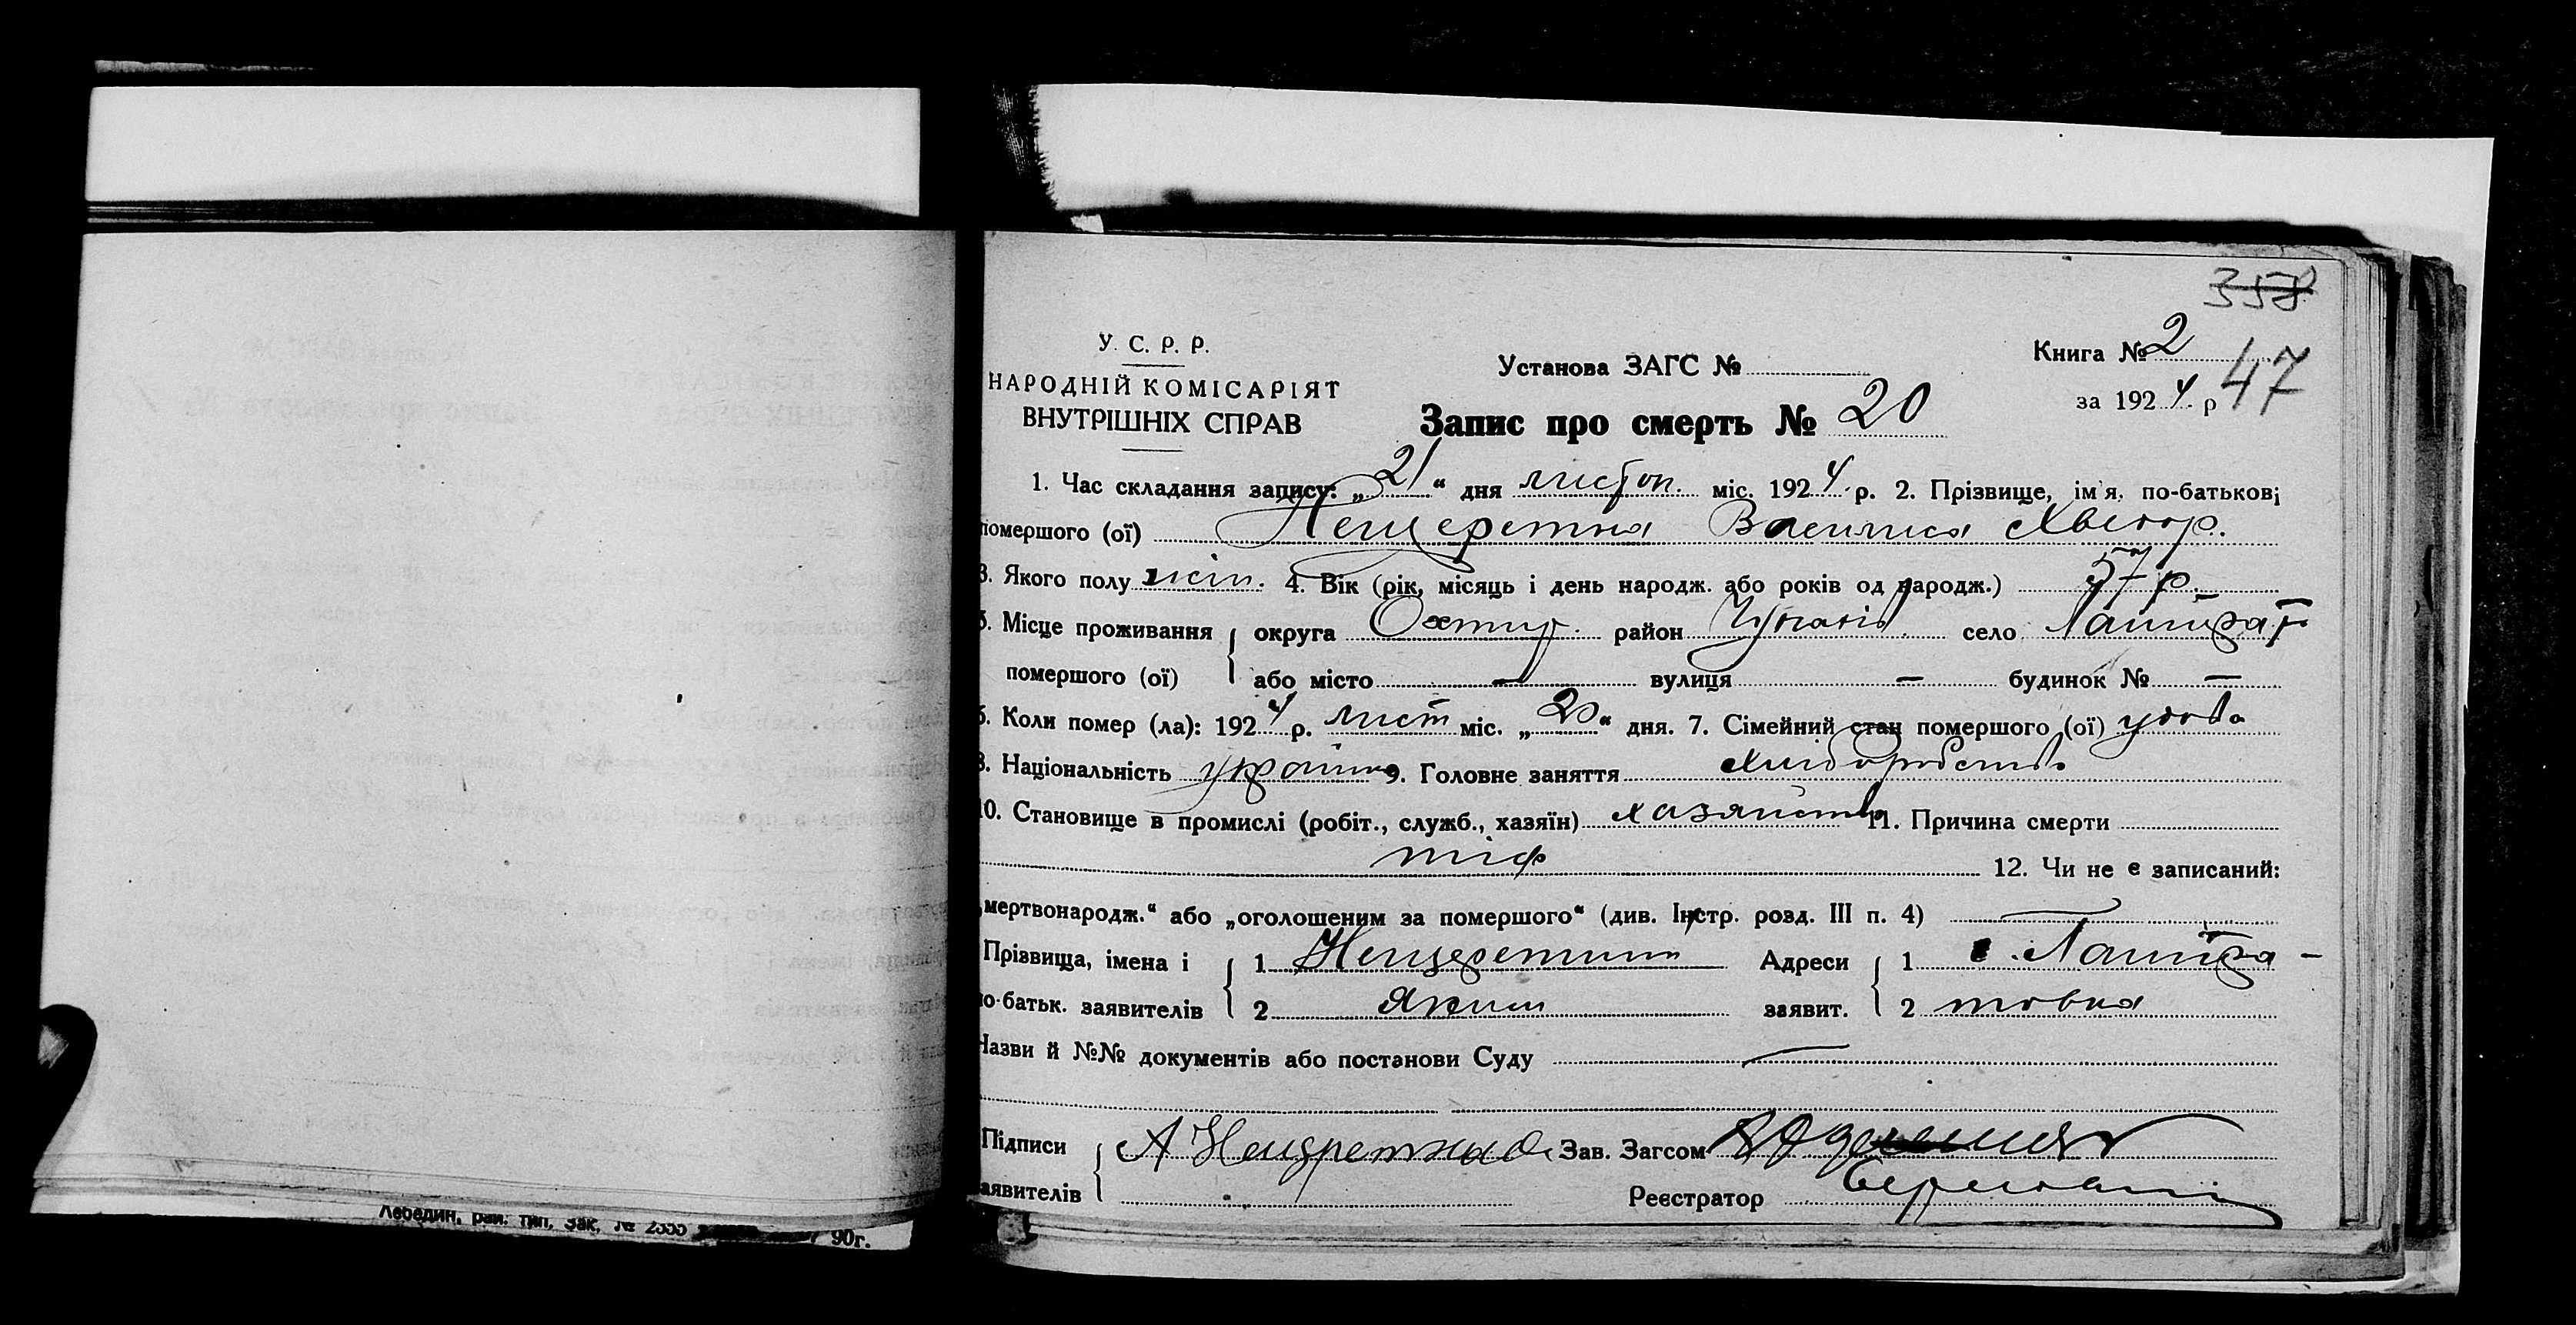 358
У. С. Р. Р.
НАРОДНІЙ КОМІСАРІЯТ
ВНУТРІШНІХ СПРАВ
Установа ЗАГС №
Книга № 2
за 1924 р
47
Запис про смерть № 20
1. Час складання запису: „21“ дня листоп. міс. 1924 р. 2. Прізвище, ім'я, по-батькові
помершого (ої) Нещеретна Василиса Хветор.
3. Якого полу жін. 4. Вік (рік, місяць і день народж. або років од народж.) 57 р.
5. Місце проживання округа Охтир. район село
помершого (ої) або місто — вулиця — будинок № —
6. Коли помер (ла): 1924 р. лист міс. „20“ дня. 7. Сімейний стан помершого (ої) удова
8. Національність україн 9. Головне заняття Хліборобств
10. Становище в промислі (робіт., служб., хазяїн) 11. Причина смерти
тіф 12. Чи не е записаний:
„мертвонародж.“ або „оголошеним за помершого“ (див. Інстр. розд. III п. 4) —
Прізвища, імена і 1 Нещеретний Адреси 1
по-батьк. заявителів 2 Яким заявит. 2 товка
Назви й №№ документів або постанови Суду —
Підписи А Нещретний Зав. Загсом
заявителів Реєстратор
Лебедин, рай. тип. Зак. № 2355 90г.